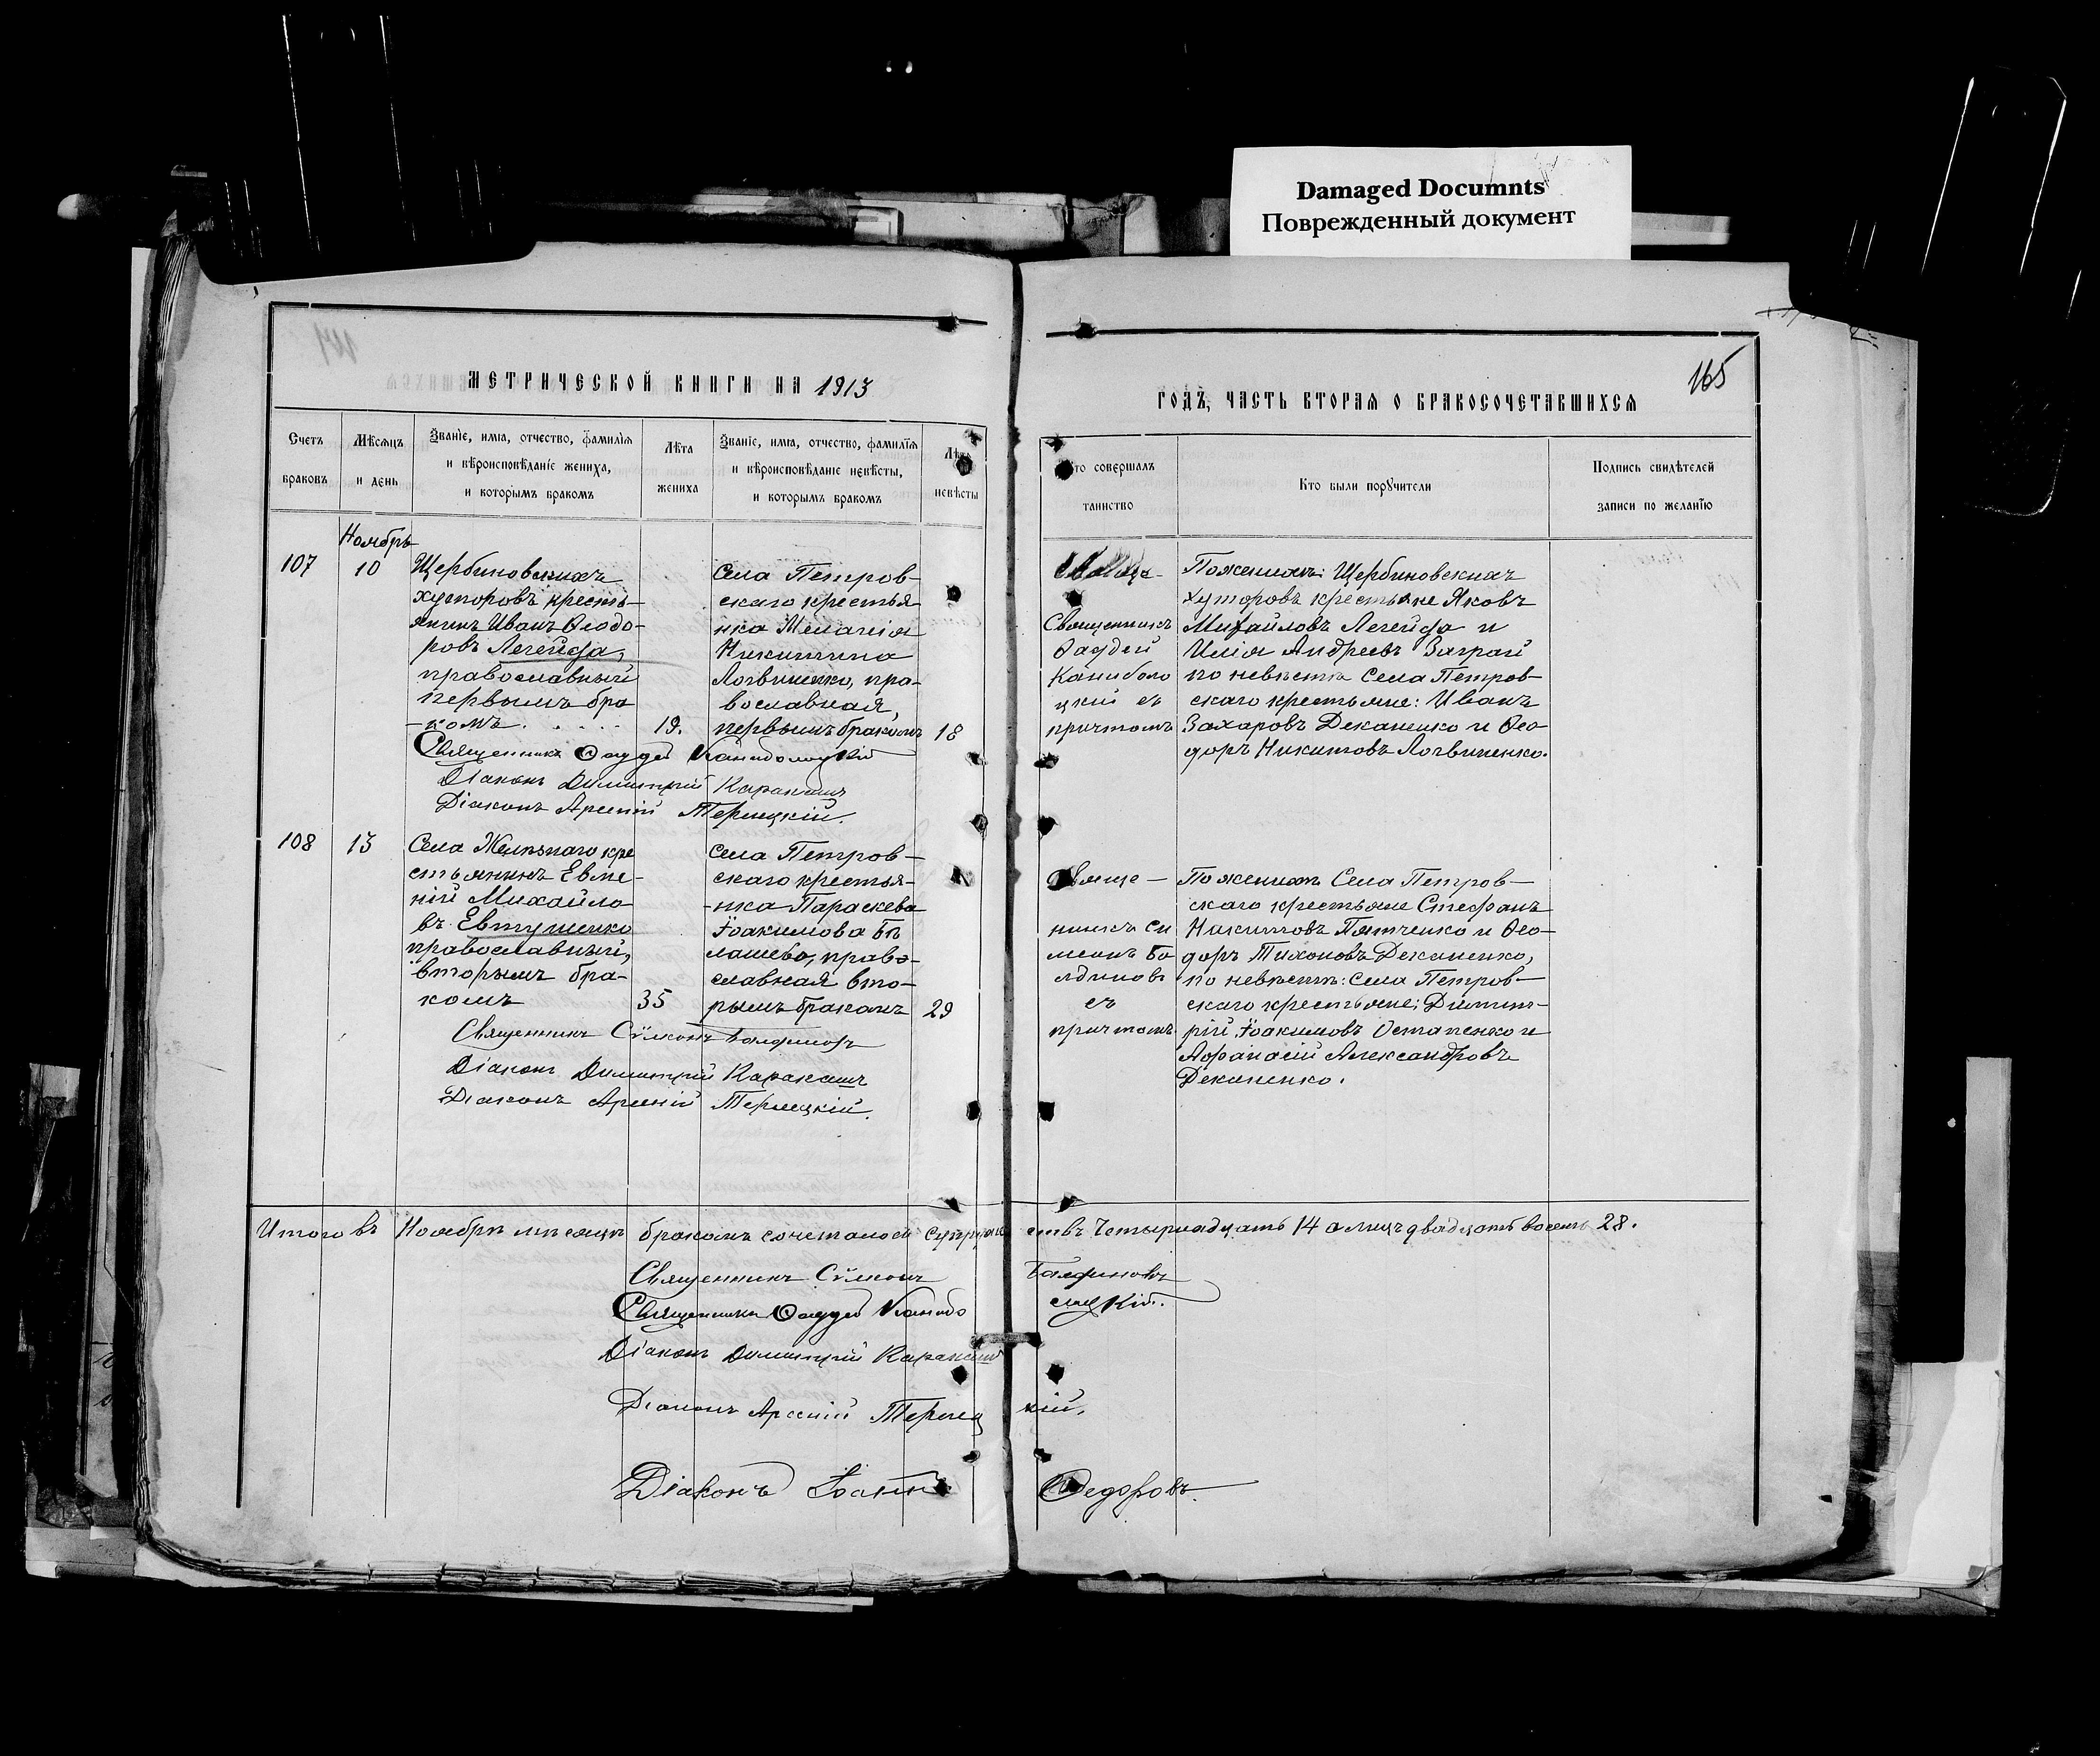 Damaged Documnts
Поврежденный документ
165
МЕТРИЧЕСКОЙ КНИГИ НА 1913
ГОДЪ, ЧАСТЬ ВТОРАЯ О БРАКОСОЧЕТАВШИХСЯ
Счетъ браковъ
Мѣсяцъ и день
Званіе, имя, отчество, фамилія
и вѣроисповѣданіе жениха,
и которымъ бракомъ
Лѣта жениха
Званіе, имя, отчество, фамилія
и вѣроисповѣданіе невѣсты,
и которымъ бракомъ
Лѣта невѣсты
Кто совершалъ
таинство
Кто были поручители
Подпись свидѣтелей
записи по желанію
Ноябрь
107
10
Щербиновскихъ
хуторовъ кресть-
янинъ Иванъ Ѳеодо-
ровъ Легейда,
православный
первымъ бра
-комъ
19.
Села Петров-
скаго крестья
нка Меланія
Никитина
Логвиненко, пра-
вославная,
первымъ бракомъ
18
Священникъ
Ѳаддей
Каниболо
цкій съ
причтомъ
По женихѣ: Щербиновскихъ
хуторовъ крестьяне Яковъ
Михайловъ Легейда и
Илія Андреевъ Заграй
по невѣстѣ Села Петров-
скаго крестьяне: Иванъ
Захаровъ Деканенко и Ѳео-
доръ Никитовъ Логвиненко.
Священникъ Ѳаддей Каниболоцкій
Діаконъ Димитрій Каракашъ
Діаконъ Арсеній Терлецкій.
108
13
Села Желѣзнаго кре
стьянинъ Евме-
ній Михайло
въ Евтушенко
православный,
вторымъ бра-
комъ
35
Села Петров-
скаго крестья-
-нка Параскева
Іоакимова Бѣ
лашева, право-
славная вто-
рымъ бракомъ
29
Свяще-
нникъ Си
меонъ Ба
лдиновъ
съ
причтомъ
По женихѣ Села Петров-
скаго крестьяне Стефанъ
Никитовъ Пятченко и Ѳео-
доръ Тихоновъ Деканенко,
по невѣстѣ: Села Петров-
скаго крестьяне: Димит-
рій Іоакимовъ Остапенко и
Афанасій Александровъ
Деканенко.
Священникъ Сѵмеонъ Балдиновъ
Діаконъ Димитрій Каракашъ
Діаконъ Арсеній Терлецкій.
Итого въ Ноябрѣ мѣсяцѣ бракомъ сочеталось супружествъ Четырнадцать 14 а лицъ двадцать восемь 28.
Священникъ Сѵмеонъ Балдиновъ
Священникъ Ѳаддей Каниболоцкій.
Діаконъ Димитрій Каракашъ
Діаконъ Арсеній Терлецкій.
Діаконъ Іоаннъ Федоровъ.